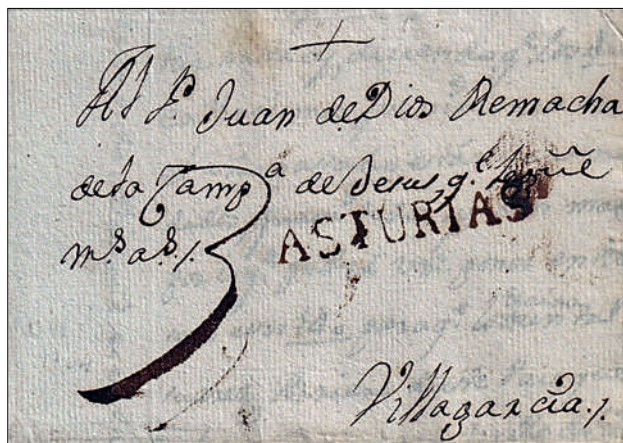 +
Al P. Juan de Dios Remacha
de la Comp.a de Jesus, q.e
m.s a.s /.
3
ASTURIAS
Villagarcia./.